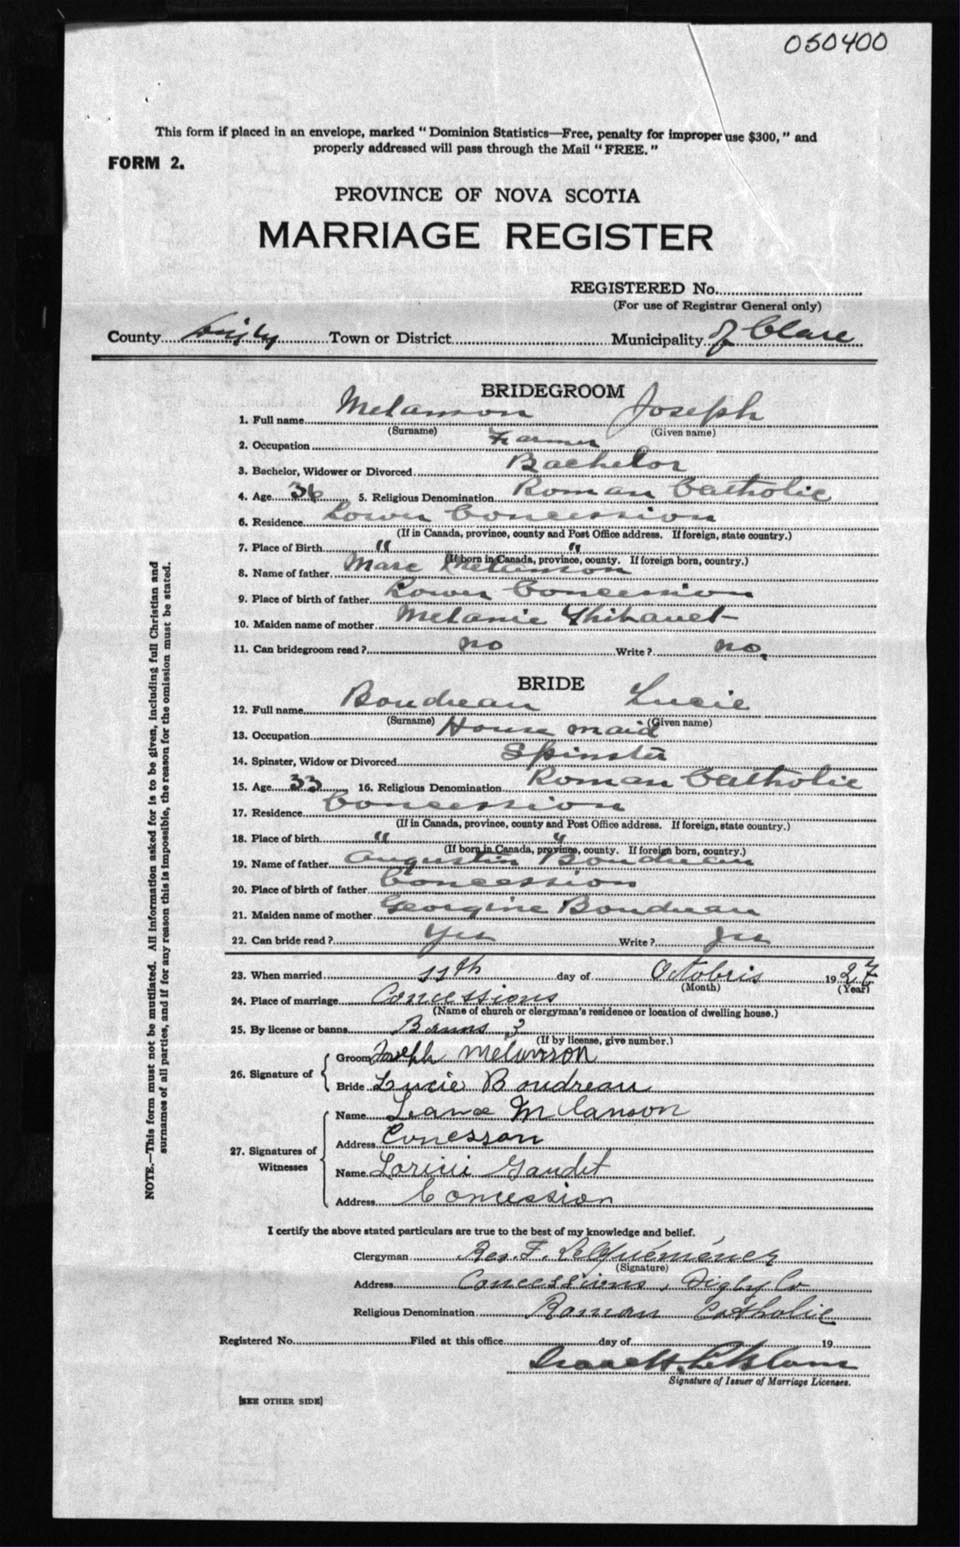 050400
This form if placed in an envelope, marked "Dominion Statistics—Free, penalty for improper use $300," and
properly addressed will pass through the Mail "FREE."
FORM 2.
PROVINCE OF NOVA SCOTIA
MARRIAGE REGISTER
REGISTERED No.
(For use of Registrar General only)
County Digby Town or District Municipality of Clare
BRIDEGROOM
1. Full name Melanson Joseph
(Surname) (Given name)
2. Occupation Farmer
3. Bachelor, Widower or Divorced Bachelor
4. Age 36 5. Religious Denomination Roman Catholic
6. Residence Lower Concession
(If in Canada, province, county and Post Office address. If foreign, state country.)
7. Place of Birth " "
(If born in Canada, province, county. If foreign born, country.)
8. Name of father Marc Melanson
9. Place of birth of father Lower Concession
10. Maiden name of mother Melanie Thibauet
11. Can bridegroom read? no Write? no.
BRIDE
12. Full name Boudreau Lucie
(Surname) (Given name)
13. Occupation House maid
14. Spinster, Widow or Divorced Spinster
15. Age 33 16. Religious Denomination Roman Catholic
17. Residence Concession
(If in Canada, province, county and Post Office address. If foreign, state country.)
18. Place of birth " "
(If born in Canada, province, county. If foreign born, country.)
19. Name of father Augustin Boudreau
20. Place of birth of father Concession
21. Maiden name of mother Georgine Boudreau
22. Can bride read? Yes Write? Yes
23. When married 11th day of Octobris 1927
(Month) (Year)
24. Place of marriage Concessions
(Name of church or clergyman's residence or location of dwelling house.)
25. By license or banns Banns 3
(If by license, give number.)
26. Signature of
Groom Joseph Melanson
Bride Lucie Boudreau
27. Signatures of Witnesses
Name Mlanson
Address
Name Gaudet
Address Concession
I certify the above stated particulars are true to the best of my knowledge and belief.
Clergyman Rev. F. LeQuéméner
(Signature)
Address Concessions, Digby Co
Religious Denomination Roman Catholic
Registered No. Filed at this office day of 19
Signature of Issuer of Marriage Licenses.
[SEE OTHER SIDE]
NOTE.—This form must not be mutilated. All information asked for is to be given, including full Christian and
surnames of all parties, and if for any reason this is impossible, the reason for the omission must be stated.